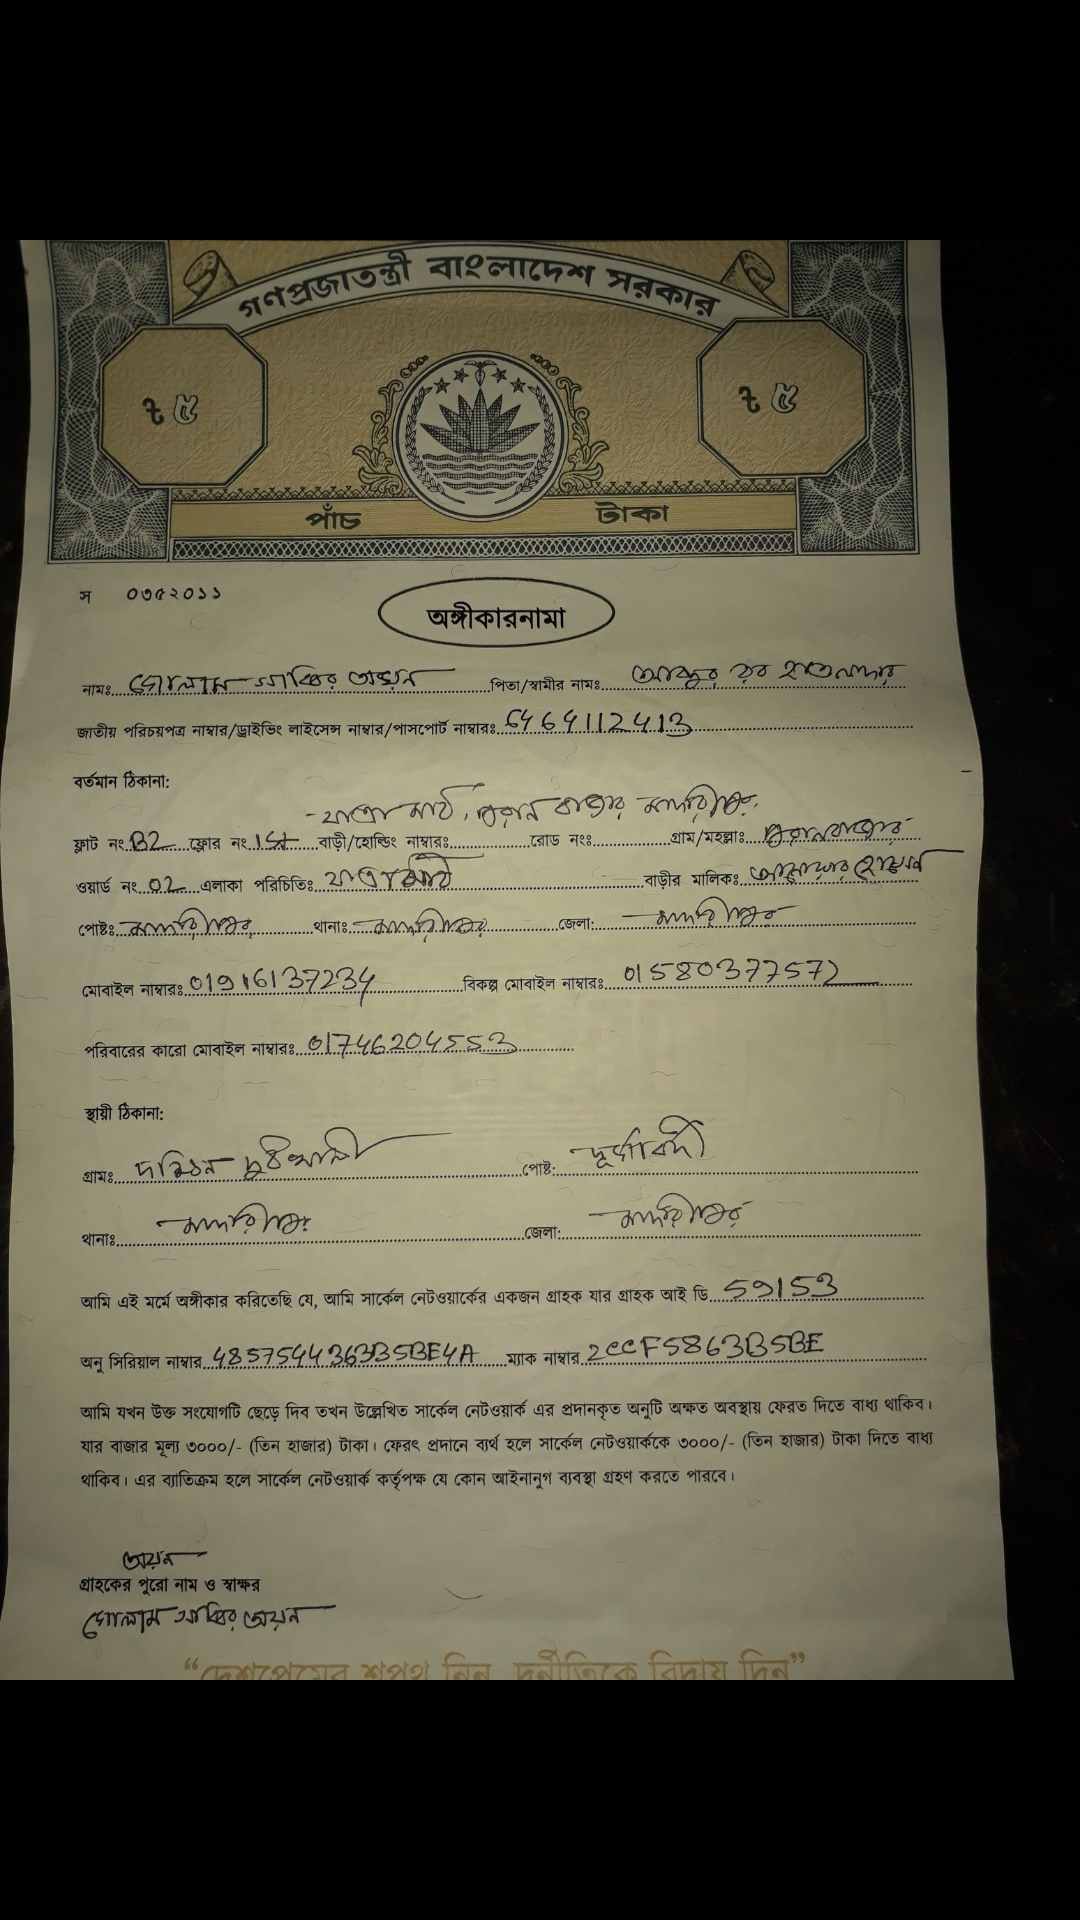 গণপ্রজাতন্ত্রী বাংলাদেশ সরকার
৳ ৫ ৳ ৫
পাঁচ টাকা
স ০৩৫২০১১
অঙ্গীকারনামা
নামঃ গোলাম সাব্বির অয়ন পিতা/স্বামীর নামঃ আব্দুর রব হাওলাদার
জাতীয় পরিচয়পত্র নাম্বার/ড্রাইভিং লাইসেন্স নাম্বার/পাসপোর্ট নাম্বারঃ 6464112413
বর্তমান ঠিকানা:
যাত্রা মাঠ, পুরান বাজার মাদারীপুর,
ফ্লাট নং B2 ফ্লোর নং 1st বাড়ী/হোল্ডিং নাম্বারঃ রোড নংঃ গ্রাম/মহল্লাঃ পুরানবাজার
ওয়ার্ড নং 02 এলাকা পরিচিতিঃ যাত্রামাঠ বাড়ীর মালিকঃ
পোষ্টঃ মাদারীপুর থানাঃ মাদারীপুর জেলা: মাদারীপুর
মোবাইল নাম্বারঃ 01916137234 বিকল্প মোবাইল নাম্বারঃ 01580377572
পরিবারের কারো মোবাইল নাম্বারঃ 01746204553
স্থায়ী ঠিকানা:
গ্রামঃ পোষ্ট:
থানাঃ মাদারীপুর জেলা: মাদারীপুর
আমি এই মর্মে অঙ্গীকার করিতেছি যে, আমি সার্কেল নেটওয়ার্কের একজন গ্রাহক যার গ্রাহক আই ডি 59153
অনু সিরিয়াল নাম্বার 48575444363B5BE4A ম্যাক নাম্বার 2CCF5863B5BE
আমি যখন উক্ত সংযোগটি ছেড়ে দিব তখন উল্লেখিত সার্কেল নেটওয়ার্ক এর প্রদানকৃত অনুটি অক্ষত অবস্থায় ফেরত দিতে বাধ্য থাকিব।
যার বাজার মূল্য ৩০০০/- (তিন হাজার) টাকা। ফেরৎ প্রদানে ব্যর্থ হলে সার্কেল নেটওয়ার্ককে ৩০০০/- (তিন হাজার) টাকা দিতে বাধ্য
থাকিব। এর ব্যাতিক্রম হলে সার্কেল নেটওয়ার্ক কর্তৃপক্ষ যে কোন আইনানুগ ব্যবস্থা গ্রহণ করতে পারবে।
অয়ন
গ্রাহকের পুরো নাম ও স্বাক্ষর
গোলাম সাব্বির অয়ন
“দেশপ্রেমের শপথ নিন, দুর্নীতিকে বিদায় দিন”